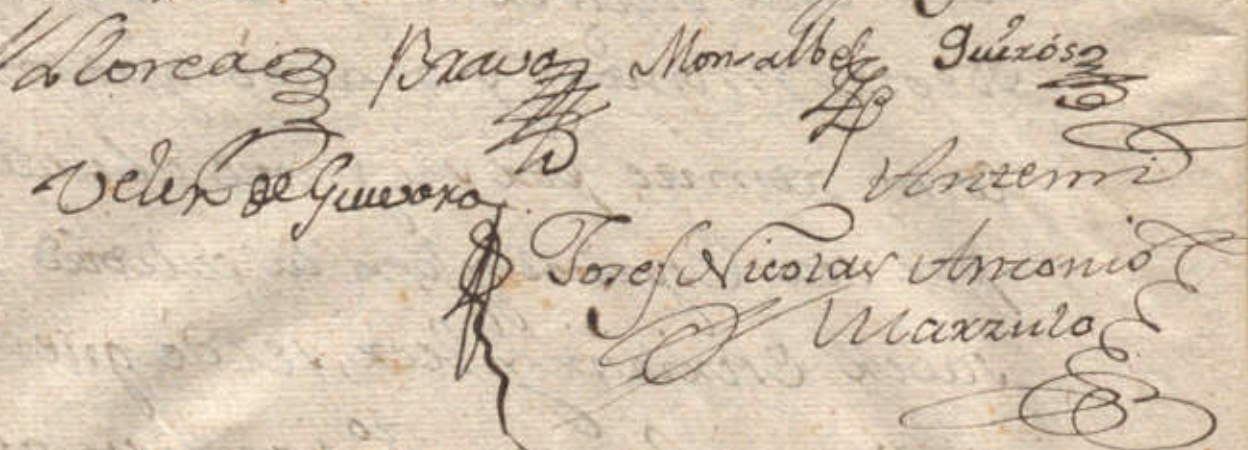 Llorca Bravo Monsalbe Quirós
Velez de Guevara Antemi
Josef Nicolas Antonio
Marzulo